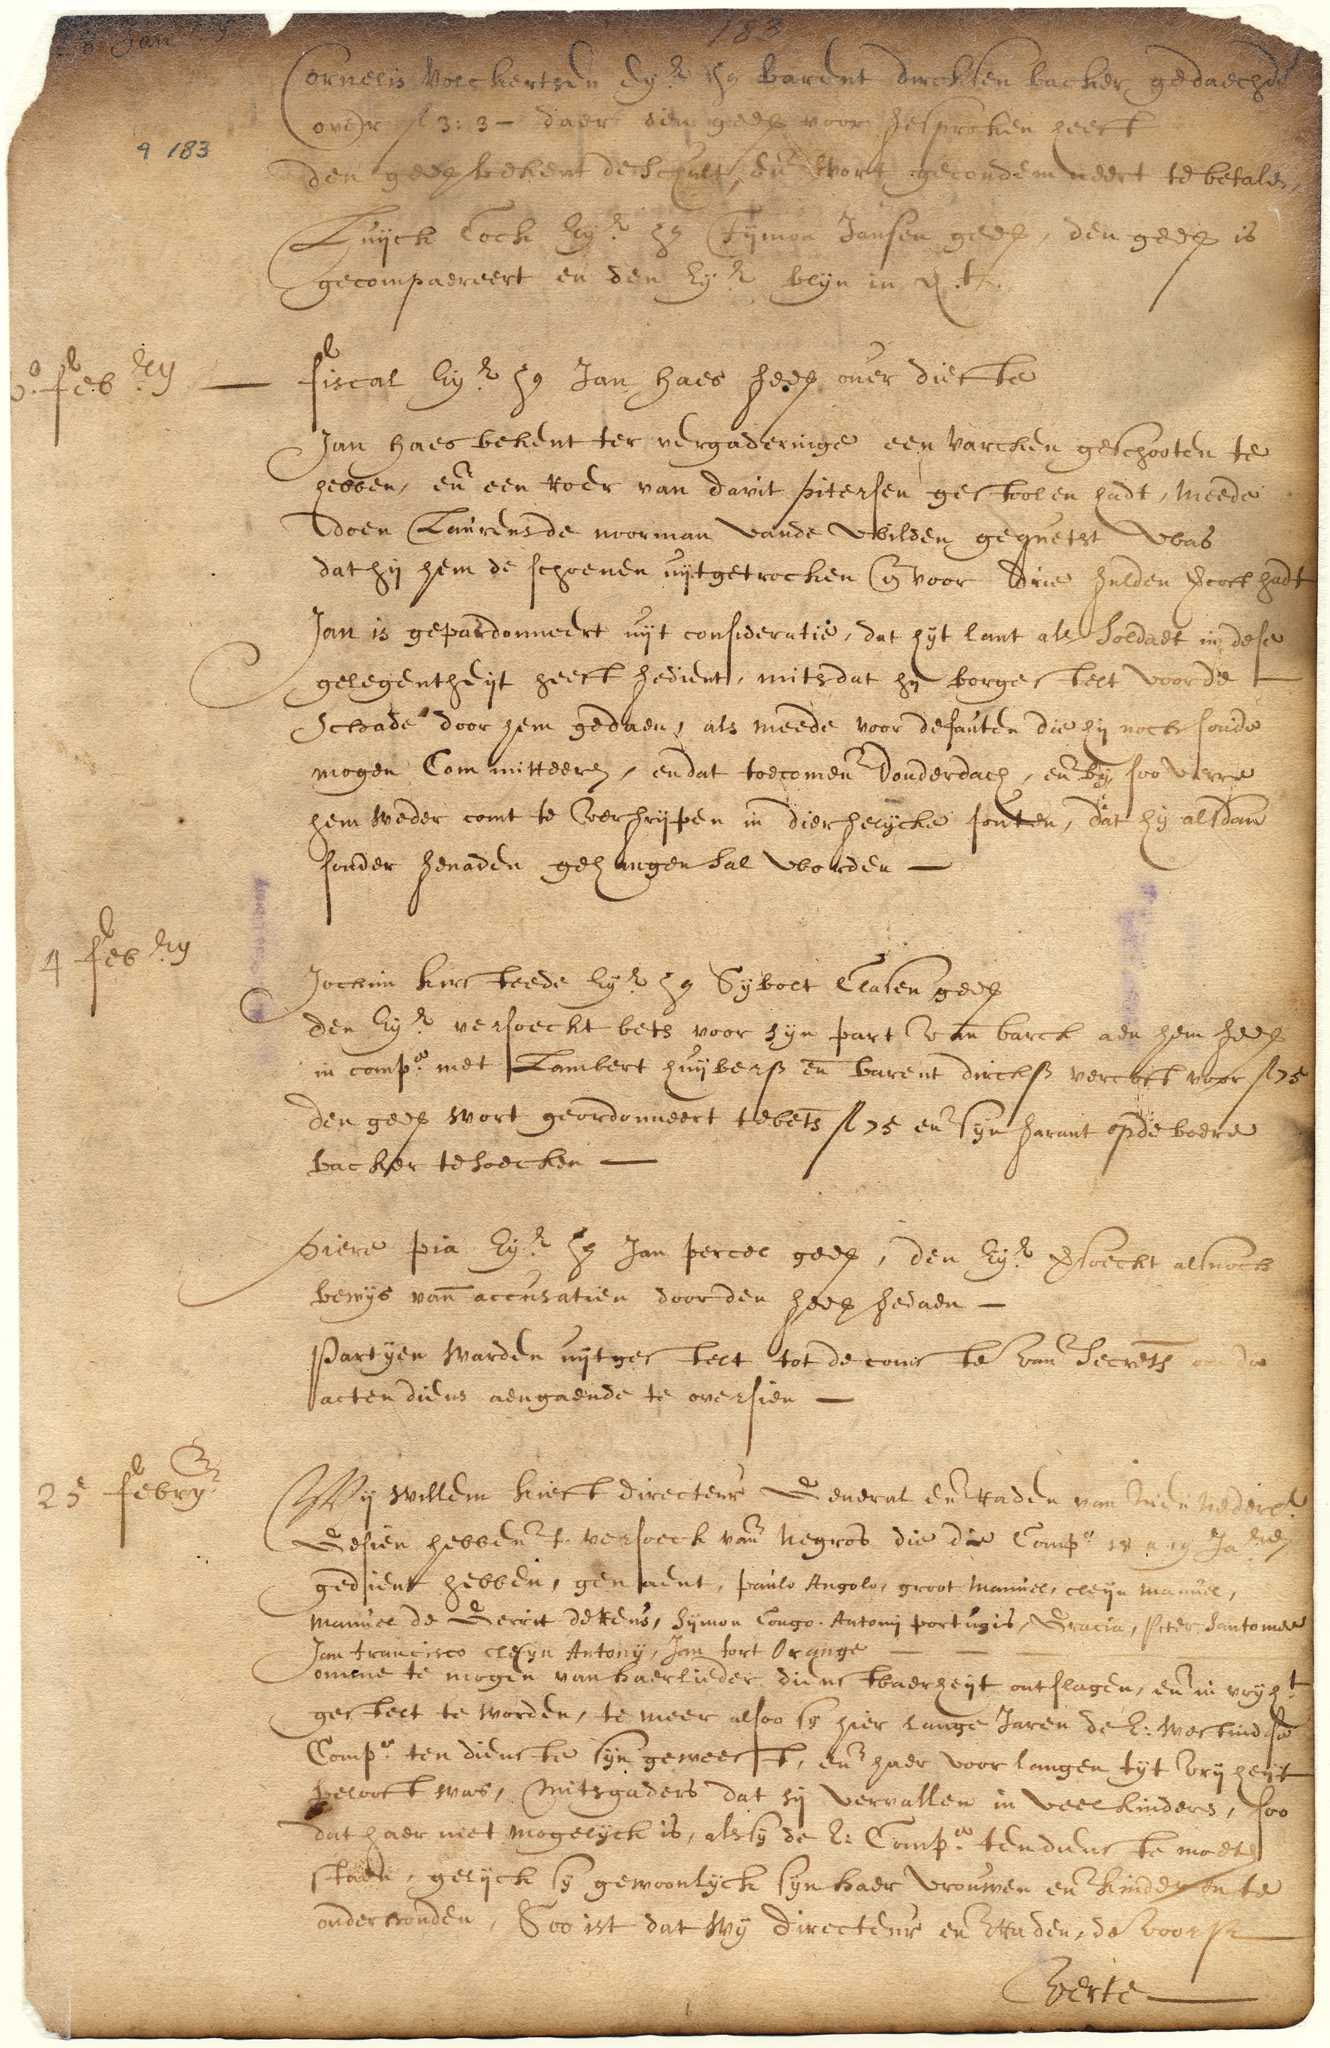 183
Jan
4 183
Cornelis Volckertsen Eyr Barent Dircksen backer gedaechde
over fl 3:3 – daer den geds voor gesproken heeft
den geds bekent de schult, en wort gecondemneert te betalen,
Luyck Cock Eyr Tymon Jansen geds, den geds is
gecompareert en den Eyr blyn in
febry — fiscal Eyr Jan Haes geds over diefte
Jan Haes bekent ter vergaderinge een varcken geschooten te
hebben, en een Roer van davit pitersen gestoolen hadt, meede
doen Laurens de noorman vande wilden gequetst was
dat hij hem de schoenen uijtgetrocken en voor drie gulden vcoft hadt
Jan is gepardonneert uijt consideratie, dat hijt lant als soldaet in dese
gelegentheijt heeft gedient, mits dat hy borge stelt voor de
Schade door hem gedaen, als meede voor de fauten die hij noch soude
mogen Committeeren, en dat toecomen donderdach, en by soo verre
hem weder comt te vergrijpen in diergelycke fouten, dat hij alsdan
sonder genaden gehangen sal worden —
4 febry
Jochim kirsteede Eyr Sybolt Clasen geds
den Eyr versoeckt betl voor syn part van barck aen hem geds
in compe met Lambert huijbers en barent dircks vercoft voor fl 75
den geds wort geordonneert te betl fl 75 en syn garant op de boere
backer te soecken —
Piere pia Eyr Jan percel geds, den Eyr vsoeckt alsnoch
bewijs van accusatien door den geds gedaen —
Partyen warden uijtgestelt tot de comste van Secrets om de
acten diens aengaende te oversien —
25 febry
Wij Willem kieft directeur General en Raden van Nieu Nederlt
Gesien hebben t versoeck van Negros die die Compe 18 a 19 Jaren
gedient hebben, genaemt, paulo Angolo, groot Manuel, cleyn manuel,
manuel de Gerrit de Reus, Symon Congo, Antony portugis, Gracia, Piter Santomee
Jan francisco cleyn Antony, Jan fort Orange — — —
omme te mogen van haerlieder dienstbaerheijt ontslagen, en in vrijht
gestelt te worden, te meer alsoo sy hier lange Jaren de E: Westindse
Compe ten dienste syn geweest, en haer voor langen tyt vrijheijt
belooft was, Mitsgaders dat sij vervallen in veel kinders, soo
dat haer niet mogelijck is, als sy de E: Compe ten dienste moeten
staen, gelijck sy gewoonlyck syn haer vrouwen en kinderen te
onderhouden, Soo ist dat wy directeur en Raden, de voorsz
Verte —